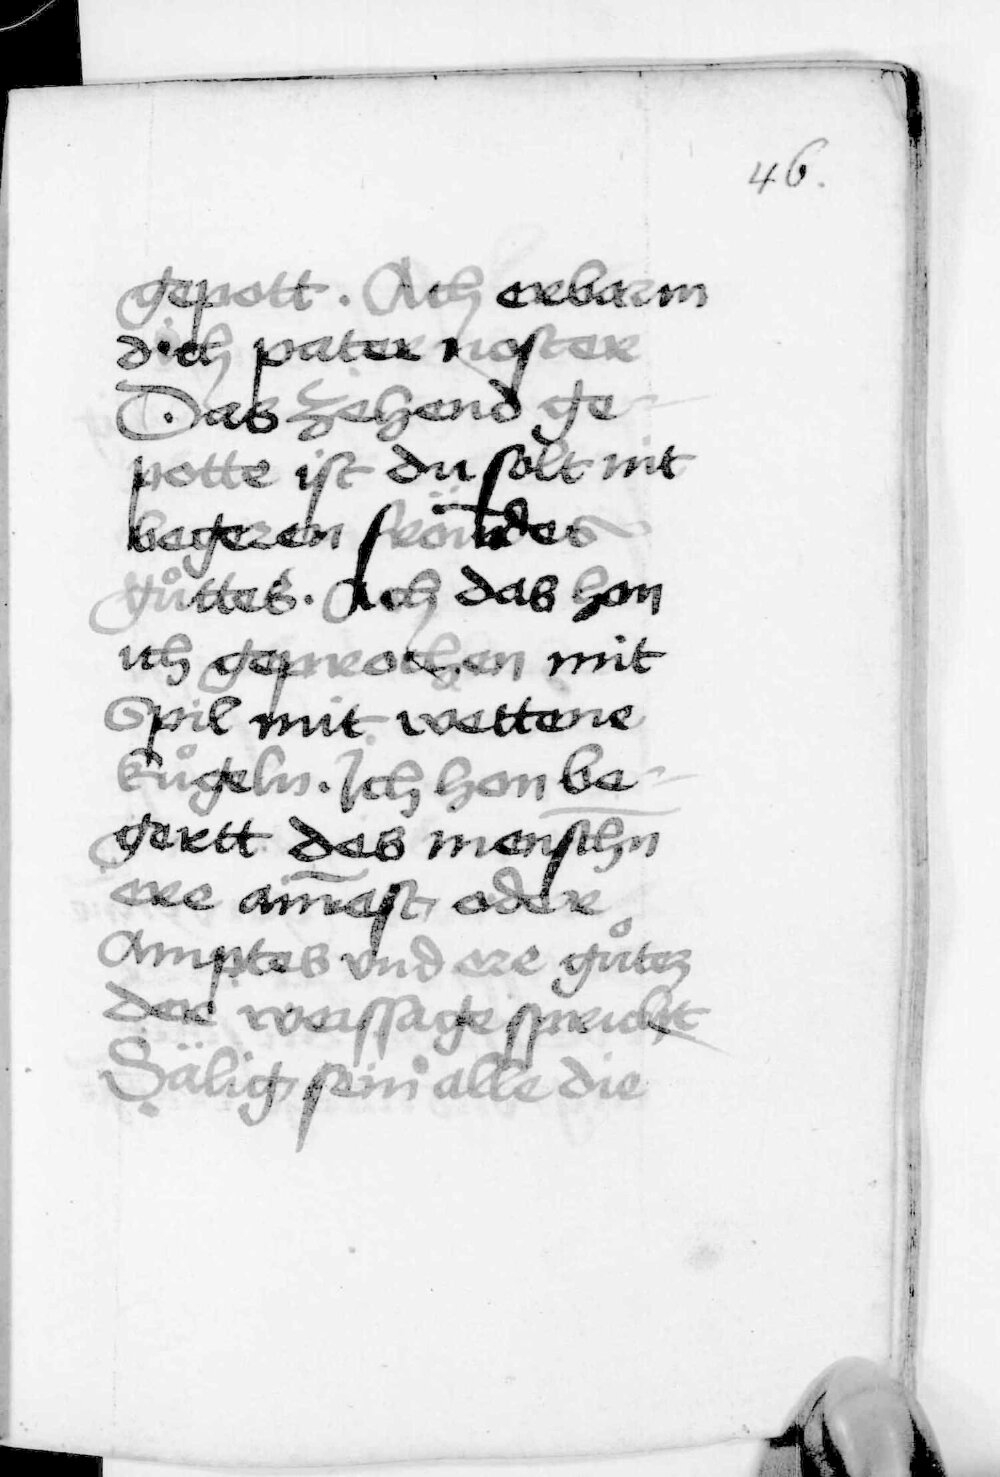 46.
gepott. Ach erbarm
dich pater noster
Das zehend ge-
potte ist du solt nit
begeren frömdes
gůttes. Ach das hon
ich geprochen mit
Spil mit wettene
kůgeln. Ich hon be-
gertt des menschn
ere oder
Amptes vnd ere gůtez
der weissage spricht
Sälig sein alle die